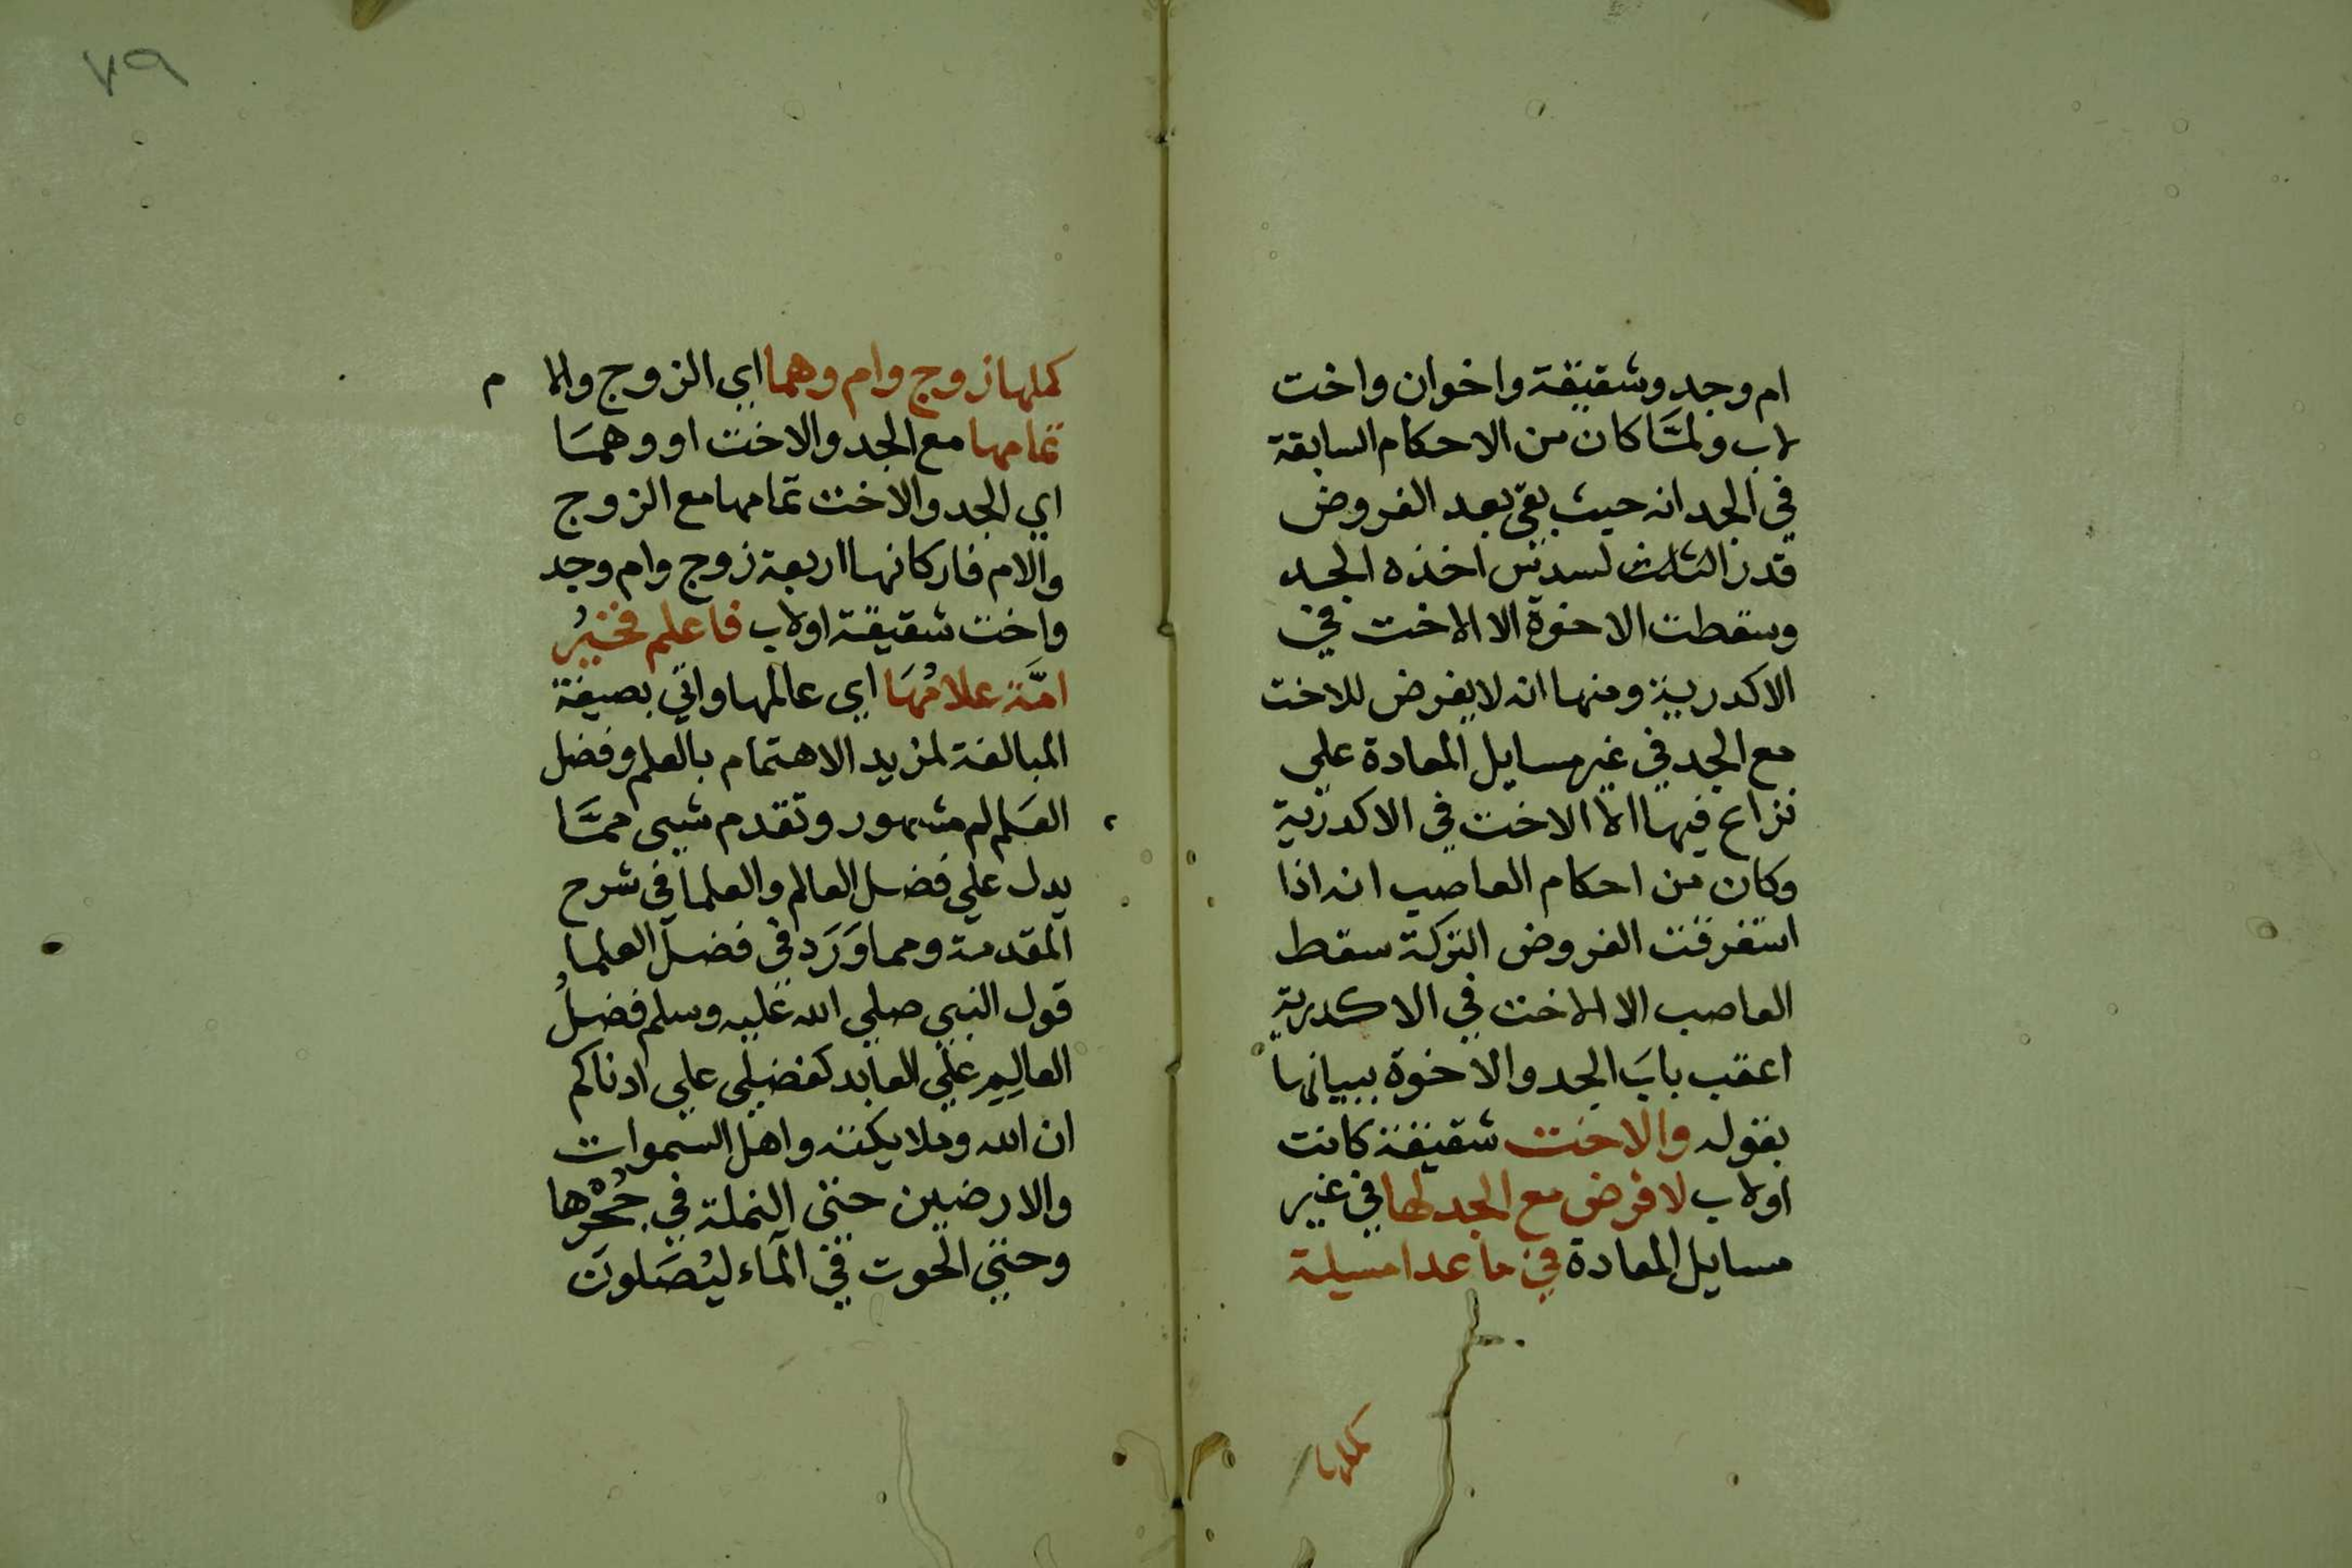 ام وجد وشقيقة واخوان واخت
لاب ولمَّا كان من الاحكام السابقة
في الجد انه حيث بقي بعد الفروض
قدر الثلث لسدس اخذه الجد
وسقطت الاخوة الا الاخت في
الاكدرية ومنها انه لا يفرض للاخت
مع الجد في غير مسايل المعادة علي
نزاع فيها الا الاخت في الاكدرية
وكان من احكام العاصب انه اذا
استغرقت الفروض التركة سقط
العاصب الا الاخت في الاكدرية
اعقب بابَ الجد والاخوة ببيانها
بقوله والاخت شقيقة كانت
اولاب لا فرض مع الجد لها في غير
مسايل المعادة في ما عدا مسيلة
كملها
٧٩
كملها زوج وام وهما اي الزوج والام
تمامها مع الجد والاخت او وهمَا
اي الجد والاخت تمامها مع الزوج
والام فاركانها اربعة زوج وام وجد
واخت شقيقة اولاب فاعلم فخيرُ
امَّة علامُهَا اي عالمها واتي بصيغة
المبالغة لمزيد الاهتمام بالعلم وفضل
العَلم لم مشهور وتقدم شيى ممَّا
يدل علي فضل العالم والعلما في شرح
المقدمة ومما وَرَد في فضل العلما
قول النبي صلي الله عليه وسلم فضلُ
العالِمِ علي العابد كفضلي علي ادناكم
ان الله وملايكته واهل السموات
والارضين حتي النملة في جُحْرها
وحتي الحوت في الماء ليُصَلونَ